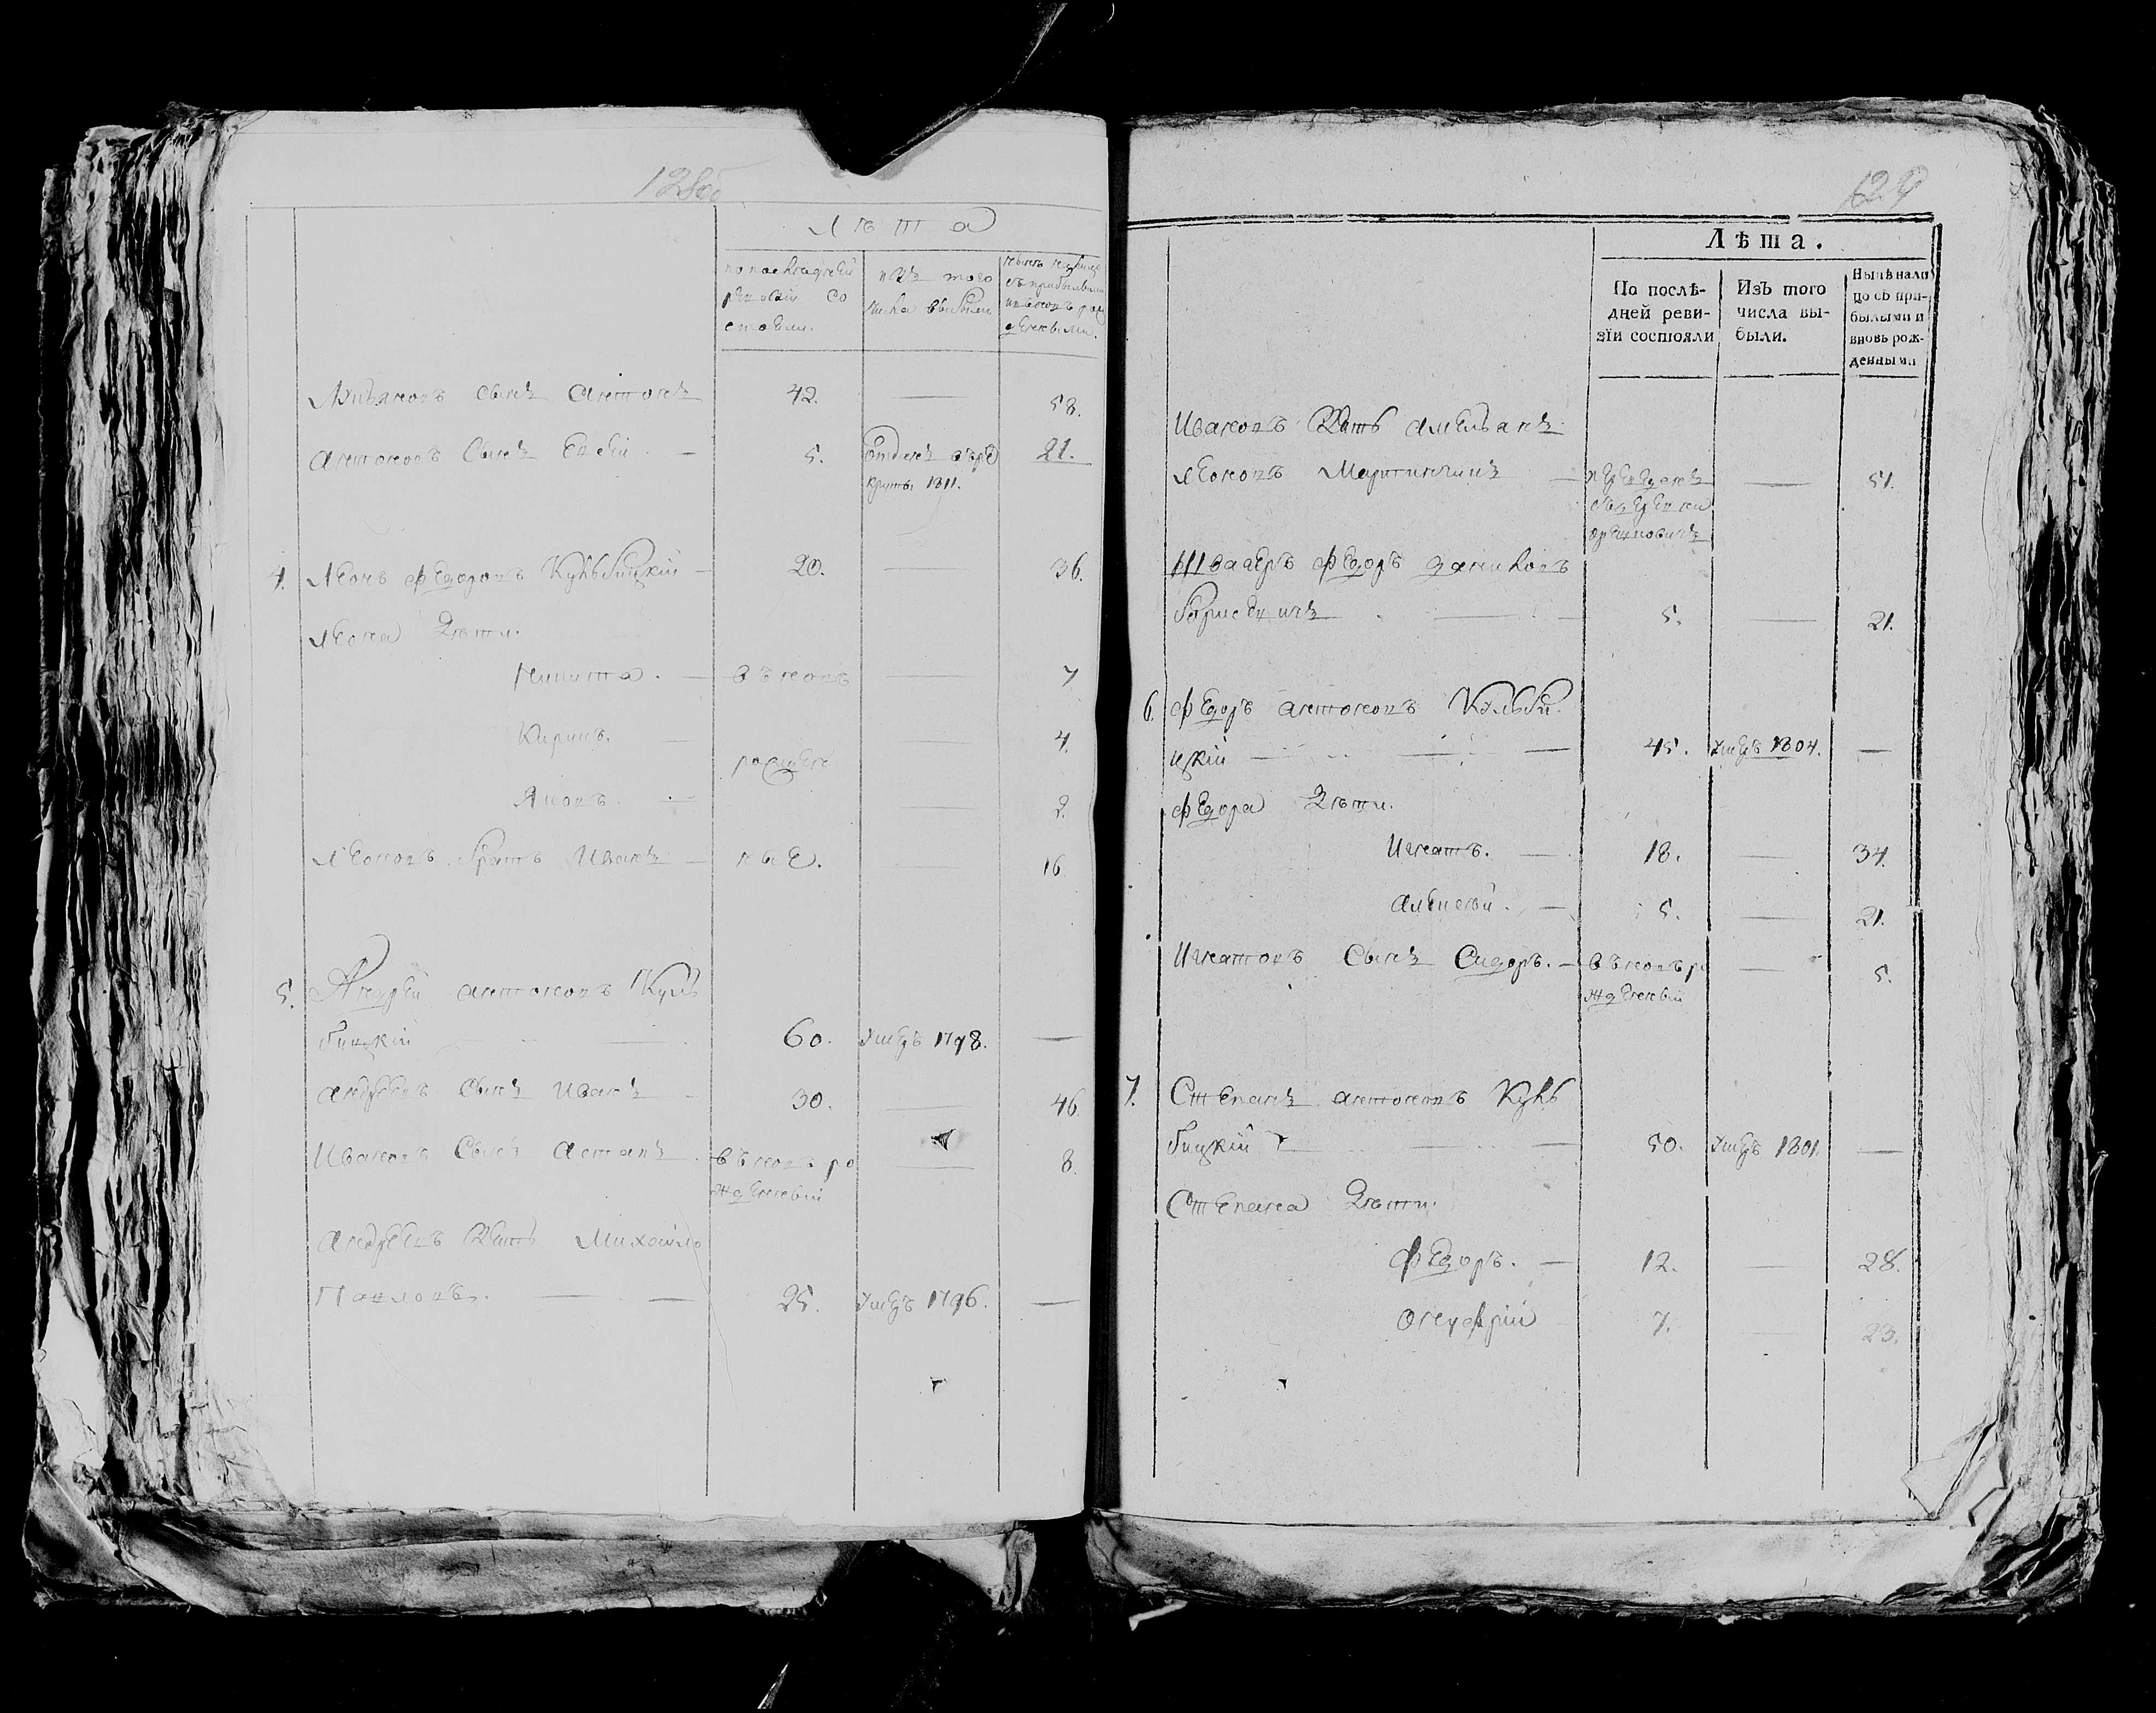 128об
Лѣта
по последней
ревизіи со
стояли.
изъ того
числа выбыли
нынѣ на лицо
съ прибылыми
и вновь рож
денными.
сынъ Антонъ 42. — 58.
Антоновъ Сынъ Евсей. — 5. Отданъ въ ре 21.
круты 1811.
4. Леонъ Федоровъ Кульбицкій — 20. — 36.
Леона Дѣти.
Никита. — вновь — 7
Кирилъ. — — 4.
рожден
Яковъ. — — 2.
Леоновъ братъ Иванъ — ные. — 16
5. Андрей Антоновъ Куль
бицкій 60. Умеръ 1798. —
Андреевъ Сынъ Иванъ — 30. — 46.
Ивановъ Сынъ Астапъ — вновь ро — 8.
жденный
Андреевъ зять Михайло
Павловъ. — 25. Умеръ 1796. —
129
Лѣта.
По послѣ-
дней реви-
зїи состояли
Изъ того
числа вы-
были.
Нынѣ нали
цо съ при-
былыми и
вновь рож-
денными
Ивановъ зять Амельянъ
Леоновъ Мартинчикъ — переведенъ — 51.
съ деревни
Швагеръ Федоръ Даниловъ
Борисевичъ — 5. — 21.
6. Федоръ Антоновъ Кульби
цкій — 45. Умеръ 1804. —
Федора Дѣти.
Игнатъ. — 18. — 34.
Алексѣй. — 5. — 21.
Игнатовъ Сынъ Сидоръ. — вновь ро — 5.
жденный
7. Степанъ Антоновъ Куль
бицкій — 50. Умеръ 1801. —
Степана Дѣти.
Федоръ. — 12. — 28.
Онуфрій 7. — 23.